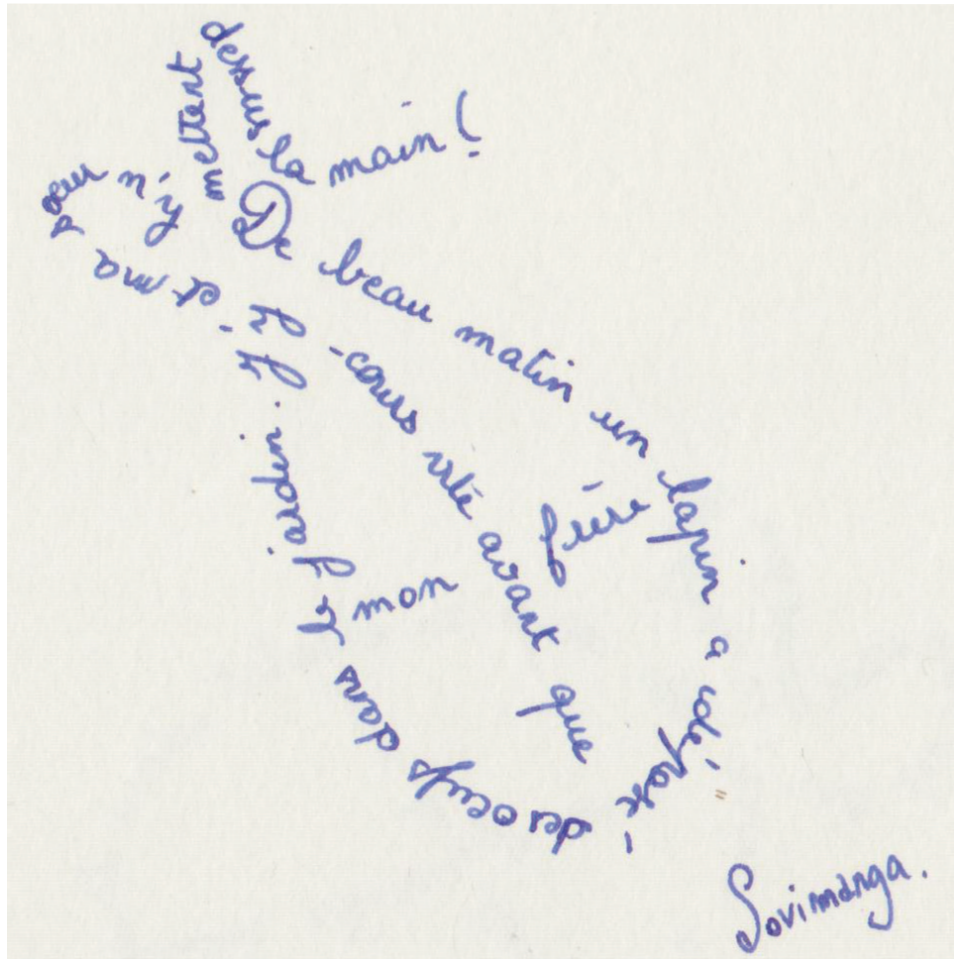 De beau matin un lapin a déposé
des oeufs dans le jardin. J'y
cours vite avant que
mon frère
et ma soeur n'y
mettent
dessus la main !
Sovimanga.